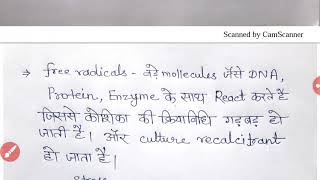 Scanned by CamScanner
→ free radicals - बड़े mollecules जैसे DNA,
Protein, Enzyme के साथ React करते हैं
जिससे कोशिका की क्रियाविधि गड़बड़ हो
जाती है। और culture recalcitrant
हो जाता है।